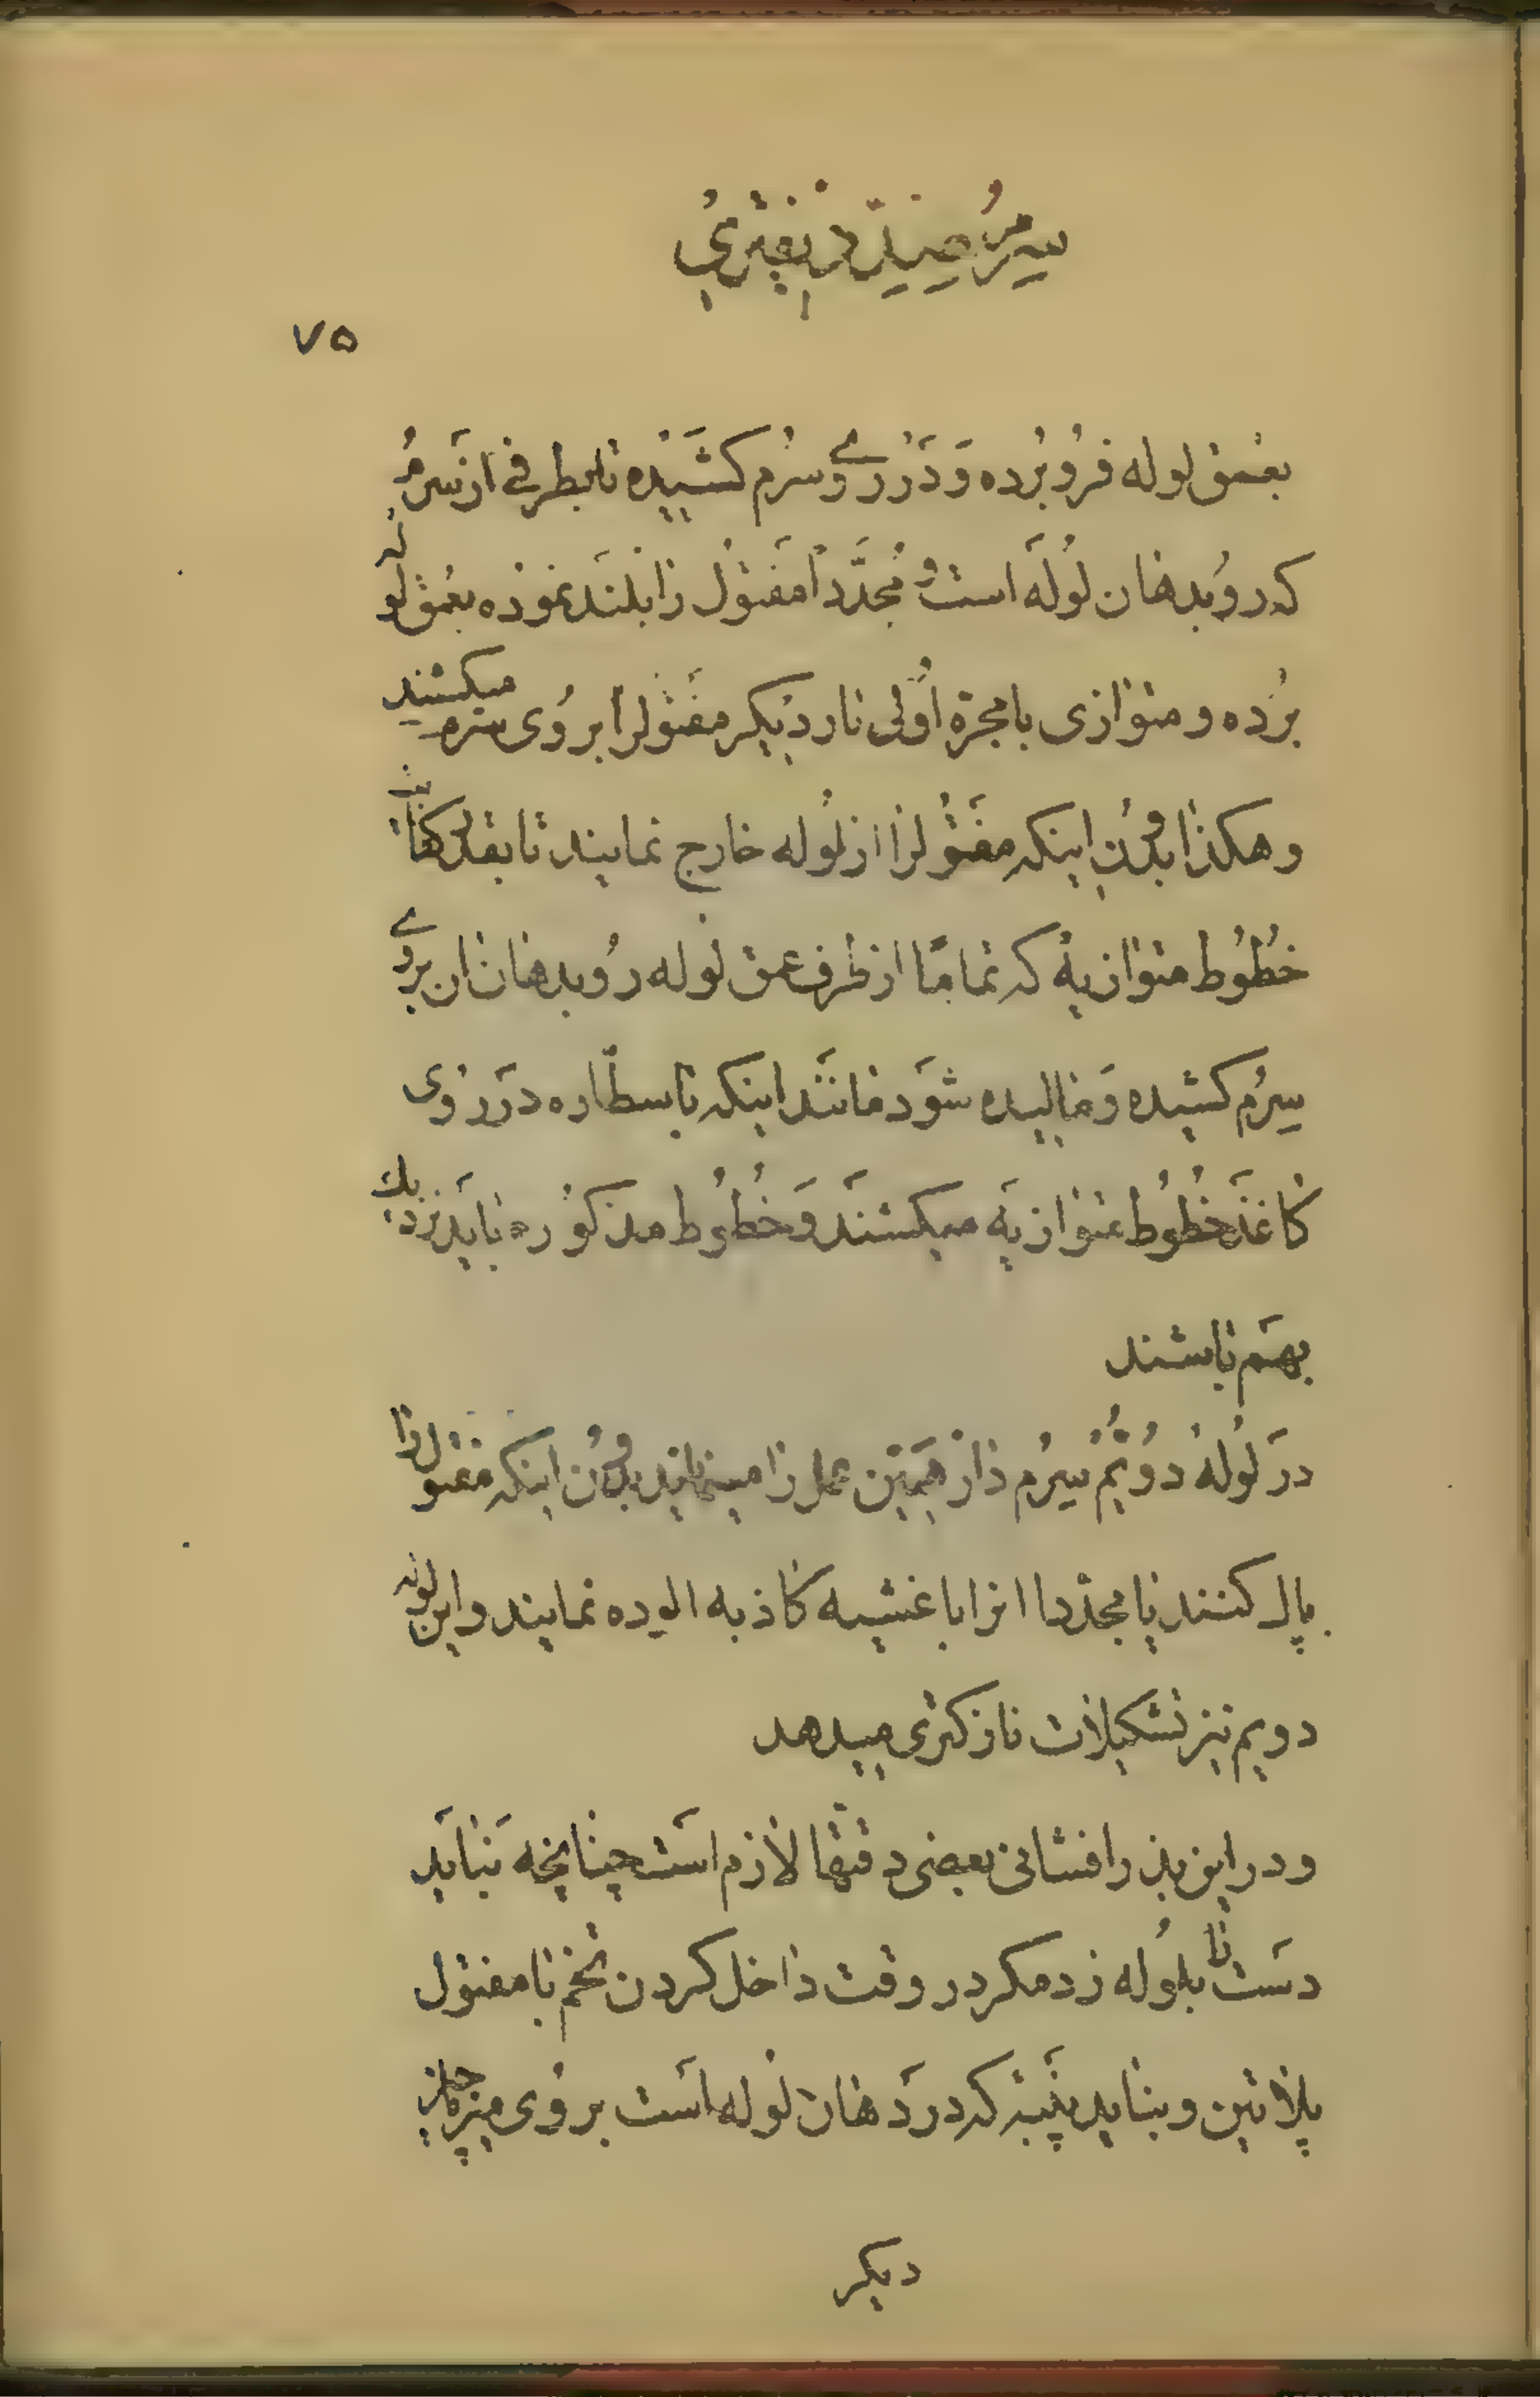 سرم ضد دیفتری
۷۵
بعمق لوله فرو برده و در روی سرم کشیده تا بطرفی از سرم
که رو بدهان لوله است و مجدداً مفتول را بلند نموده بعمق لوله
برده و متوازی با مجرة اولی بار دیگر مفتولرا بر روی سرم میکشند
و هکذا بدون اینکه مفتولرا از لوله خارج نمایند تا بقدر کفایت
خطوط متوازیهٔ که تماماً از طرف عمق لوله رو بدهان ان بروی
سرم کشیده و مالیده شود مانند اینکه با سطّاره در روی
کاغذ خطوط متوازیه میکشند و خطوط مذکوره باید نزدیک
بهم باشند
در لولهٔ دویّم سرم دار همین عمل را مینمایند بدون اینکه مفتول را
پاک کنند یا مجدداً انرا باغشیه کاذبه الوده نمایند و این لوله
دویم نیز تشکیلات نازکتری میدهد
و در این بذر افشانی بعضی دقتها لازم است چنانچه نباید
دست را بلوله زد مگر در وقت داخل کردن تخم با مفتول
پلاتین و نباید پنبه که در دهان لوله است بروی میز یا
دیکر